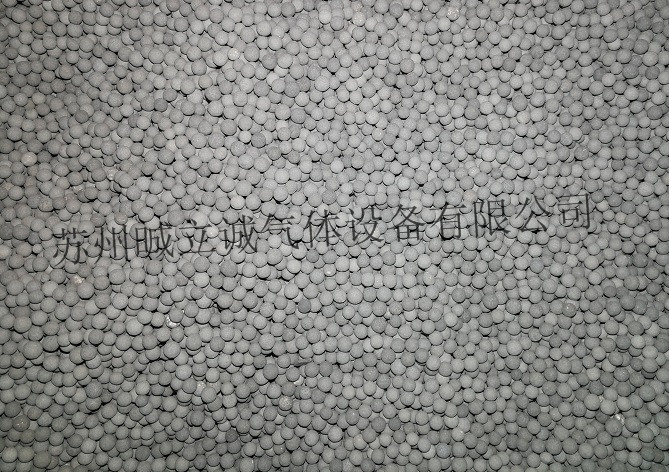 苏州晠立诚气体设备有限公司